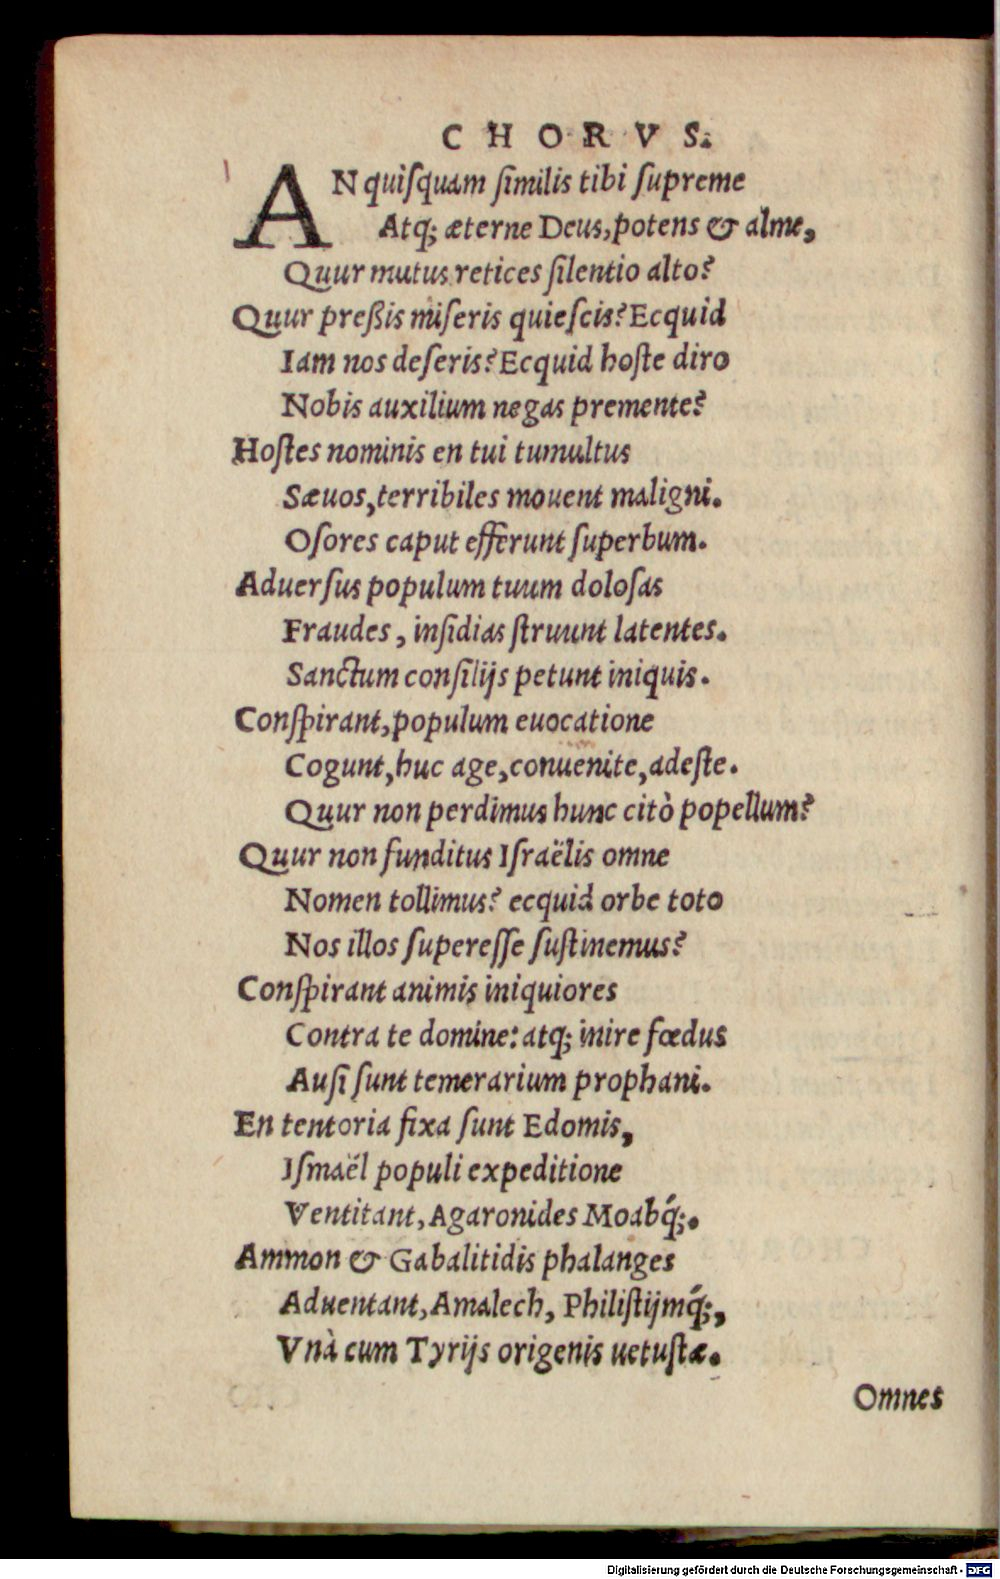 CHORVS.
AN quiſquam ſimilis tibi ſupreme
Atq; æterne Deus, potens & alme,
Quur mutus retices ſilentio alto?
Quur preßis miſeris quieſcis? Ecquid
Iam nos deſeris? Ecquid hoſte diro
Nobis auxilium negas premente?
Hoſtes nominis en tui tumultus
Sæuos, terribiles mouent maligni.
Oſores caput efferunt ſuperbum.
Aduerſus populum tuum doloſas
Fraudes, inſidias ſtruunt latentes.
Sanctum conſilijs petunt iniquis.
Conſpirant, populum euocatione
Cogunt, huc age, conuenite, adeſte.
Quur non perdimus hunc citò popellum?
Quur non funditus Iſraëlis omne
Nomen tollimus? ecquid orbe toto
Nos illos ſupereſſe ſuſtinemus?
Conſpirant animis iniquiores
Contra te domine: atq; inire fœdus
Auſi ſunt temerarium prophani.
En tentoria fixa ſunt Edomis,
Iſmaël populi expeditione
Ventitant, Agaronides Moabq́;.
Ammon & Gabalitidis phalanges
Aduentant, Amalech, Philiſtijmq́;,
Vnà cum Tyrijs origenis uetuſtæ.
Omnes
Digitalisierung gefördert durch die Deutsche Forschungsgemeinschaft - DFG